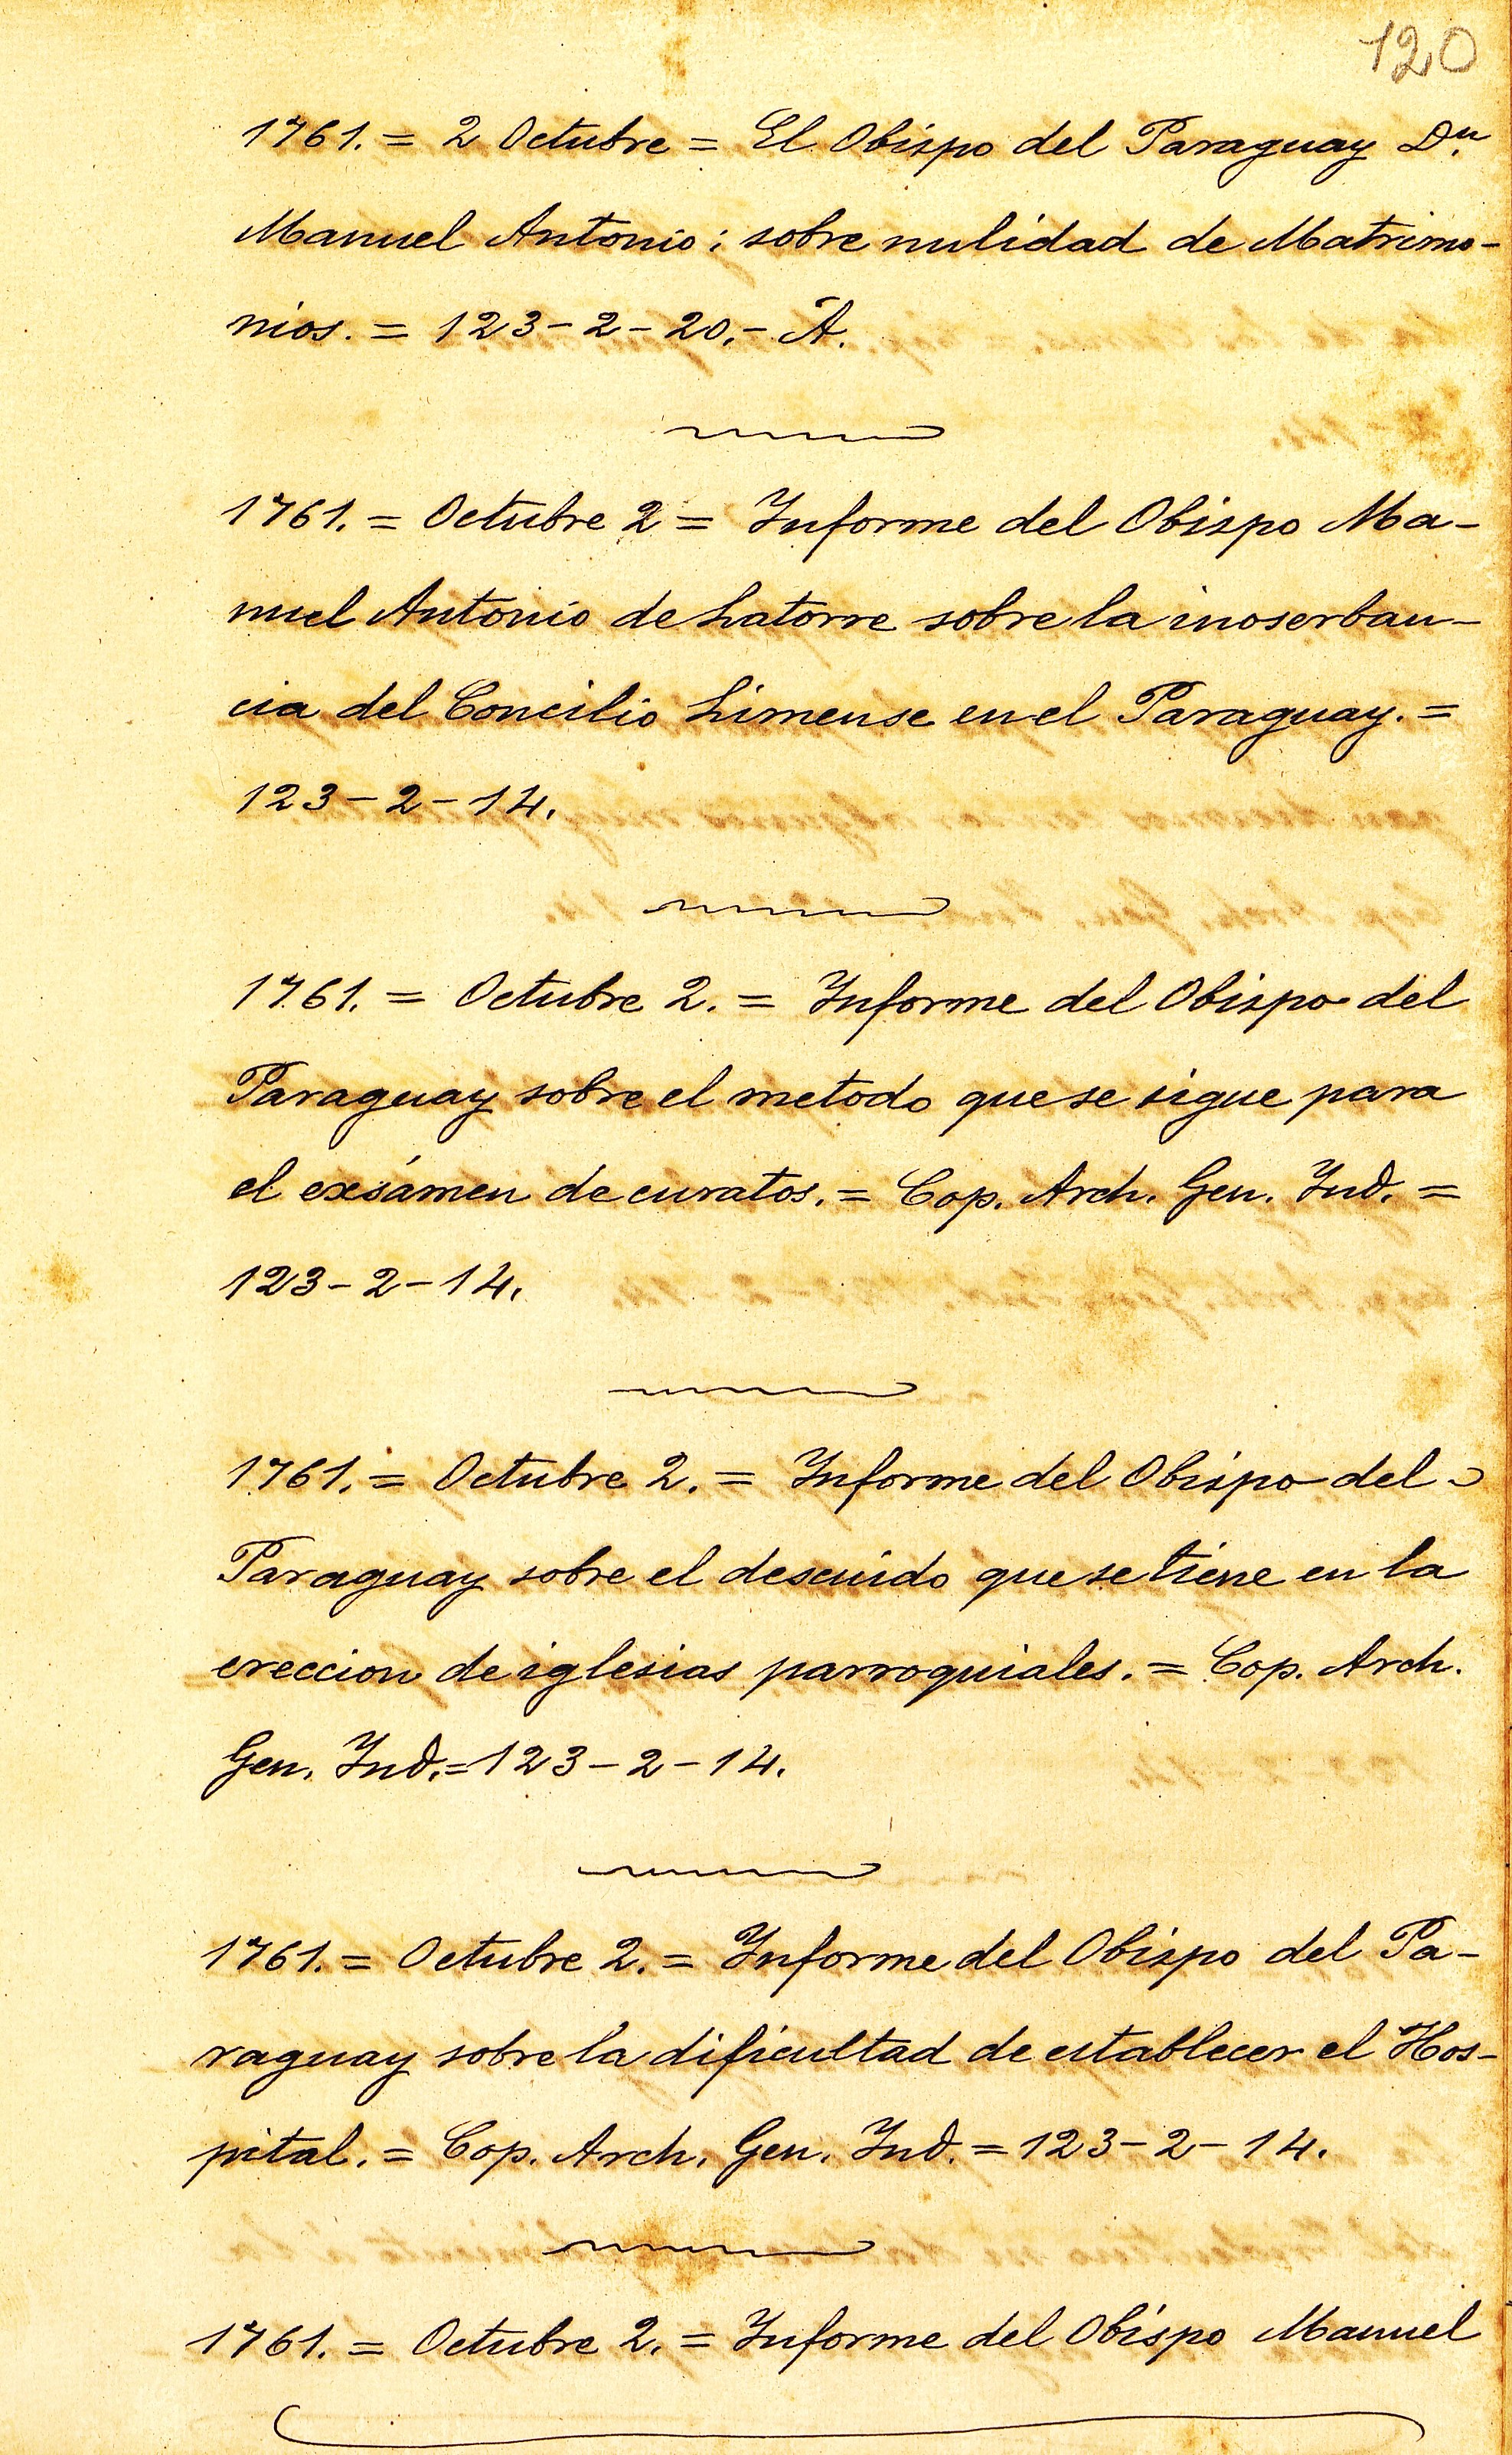 120
1761. = 2 Octubre = El Obispo del Paraguay Dn.
Manuel Antonio: sobre nulidad de Matrimo-
nios. = 123-2-20.- A.
1761. = Octubre 2 = Informe del Obispo Ma-
nuel Antonio de Latorre sobre la inoserban-
cia del Concilio Limense en el Paraguay. =
123-2-14.
1761. = Octubre 2. = Informe del Obispo del
Paraguay sobre el metodo que se sigue para
el exsámen de curatos. = Cop. Arch. Gen. Ind. =
123-2-14.
1761. = Octubre 2. = Informe del Obispo del
Paraguay sobre el descuido que se tiene en la
ereccion de iglesias parroquiales. = Cop. Arch.
Gen. Ind. = 123-2-14.
1761. = Octubre 2. = Informe del Obispo del Pa-
raguay sobre la dificultad de establecer el Hos-
pital. = Cop. Arch. Gen. Ind. = 123-2-14.
1761. = Octubre 2. = Informe del Obispo Manuel